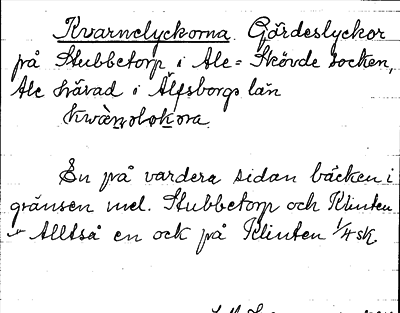 Kvarnelyckorna. Gärdeslyckor
på Stubbetorp i Ale-Skövde socken,
Ale härad i Älfsborgs län

En på vardera sidan bäcken i
gränsen mel. Stubbetorp och Klinten
- Alltså en ock på Klinten 1/4 sk.